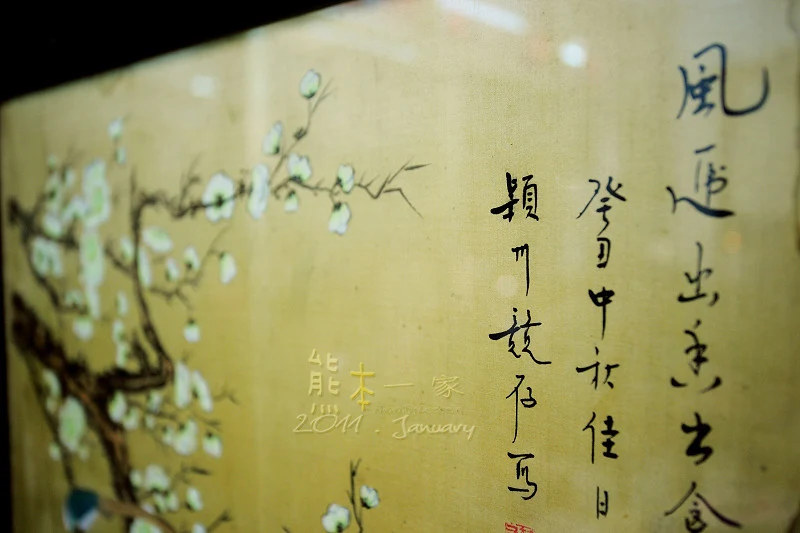 風遞幽香出禽
癸丑中秋佳日
穎川競存写
熊本一家
2011 . January